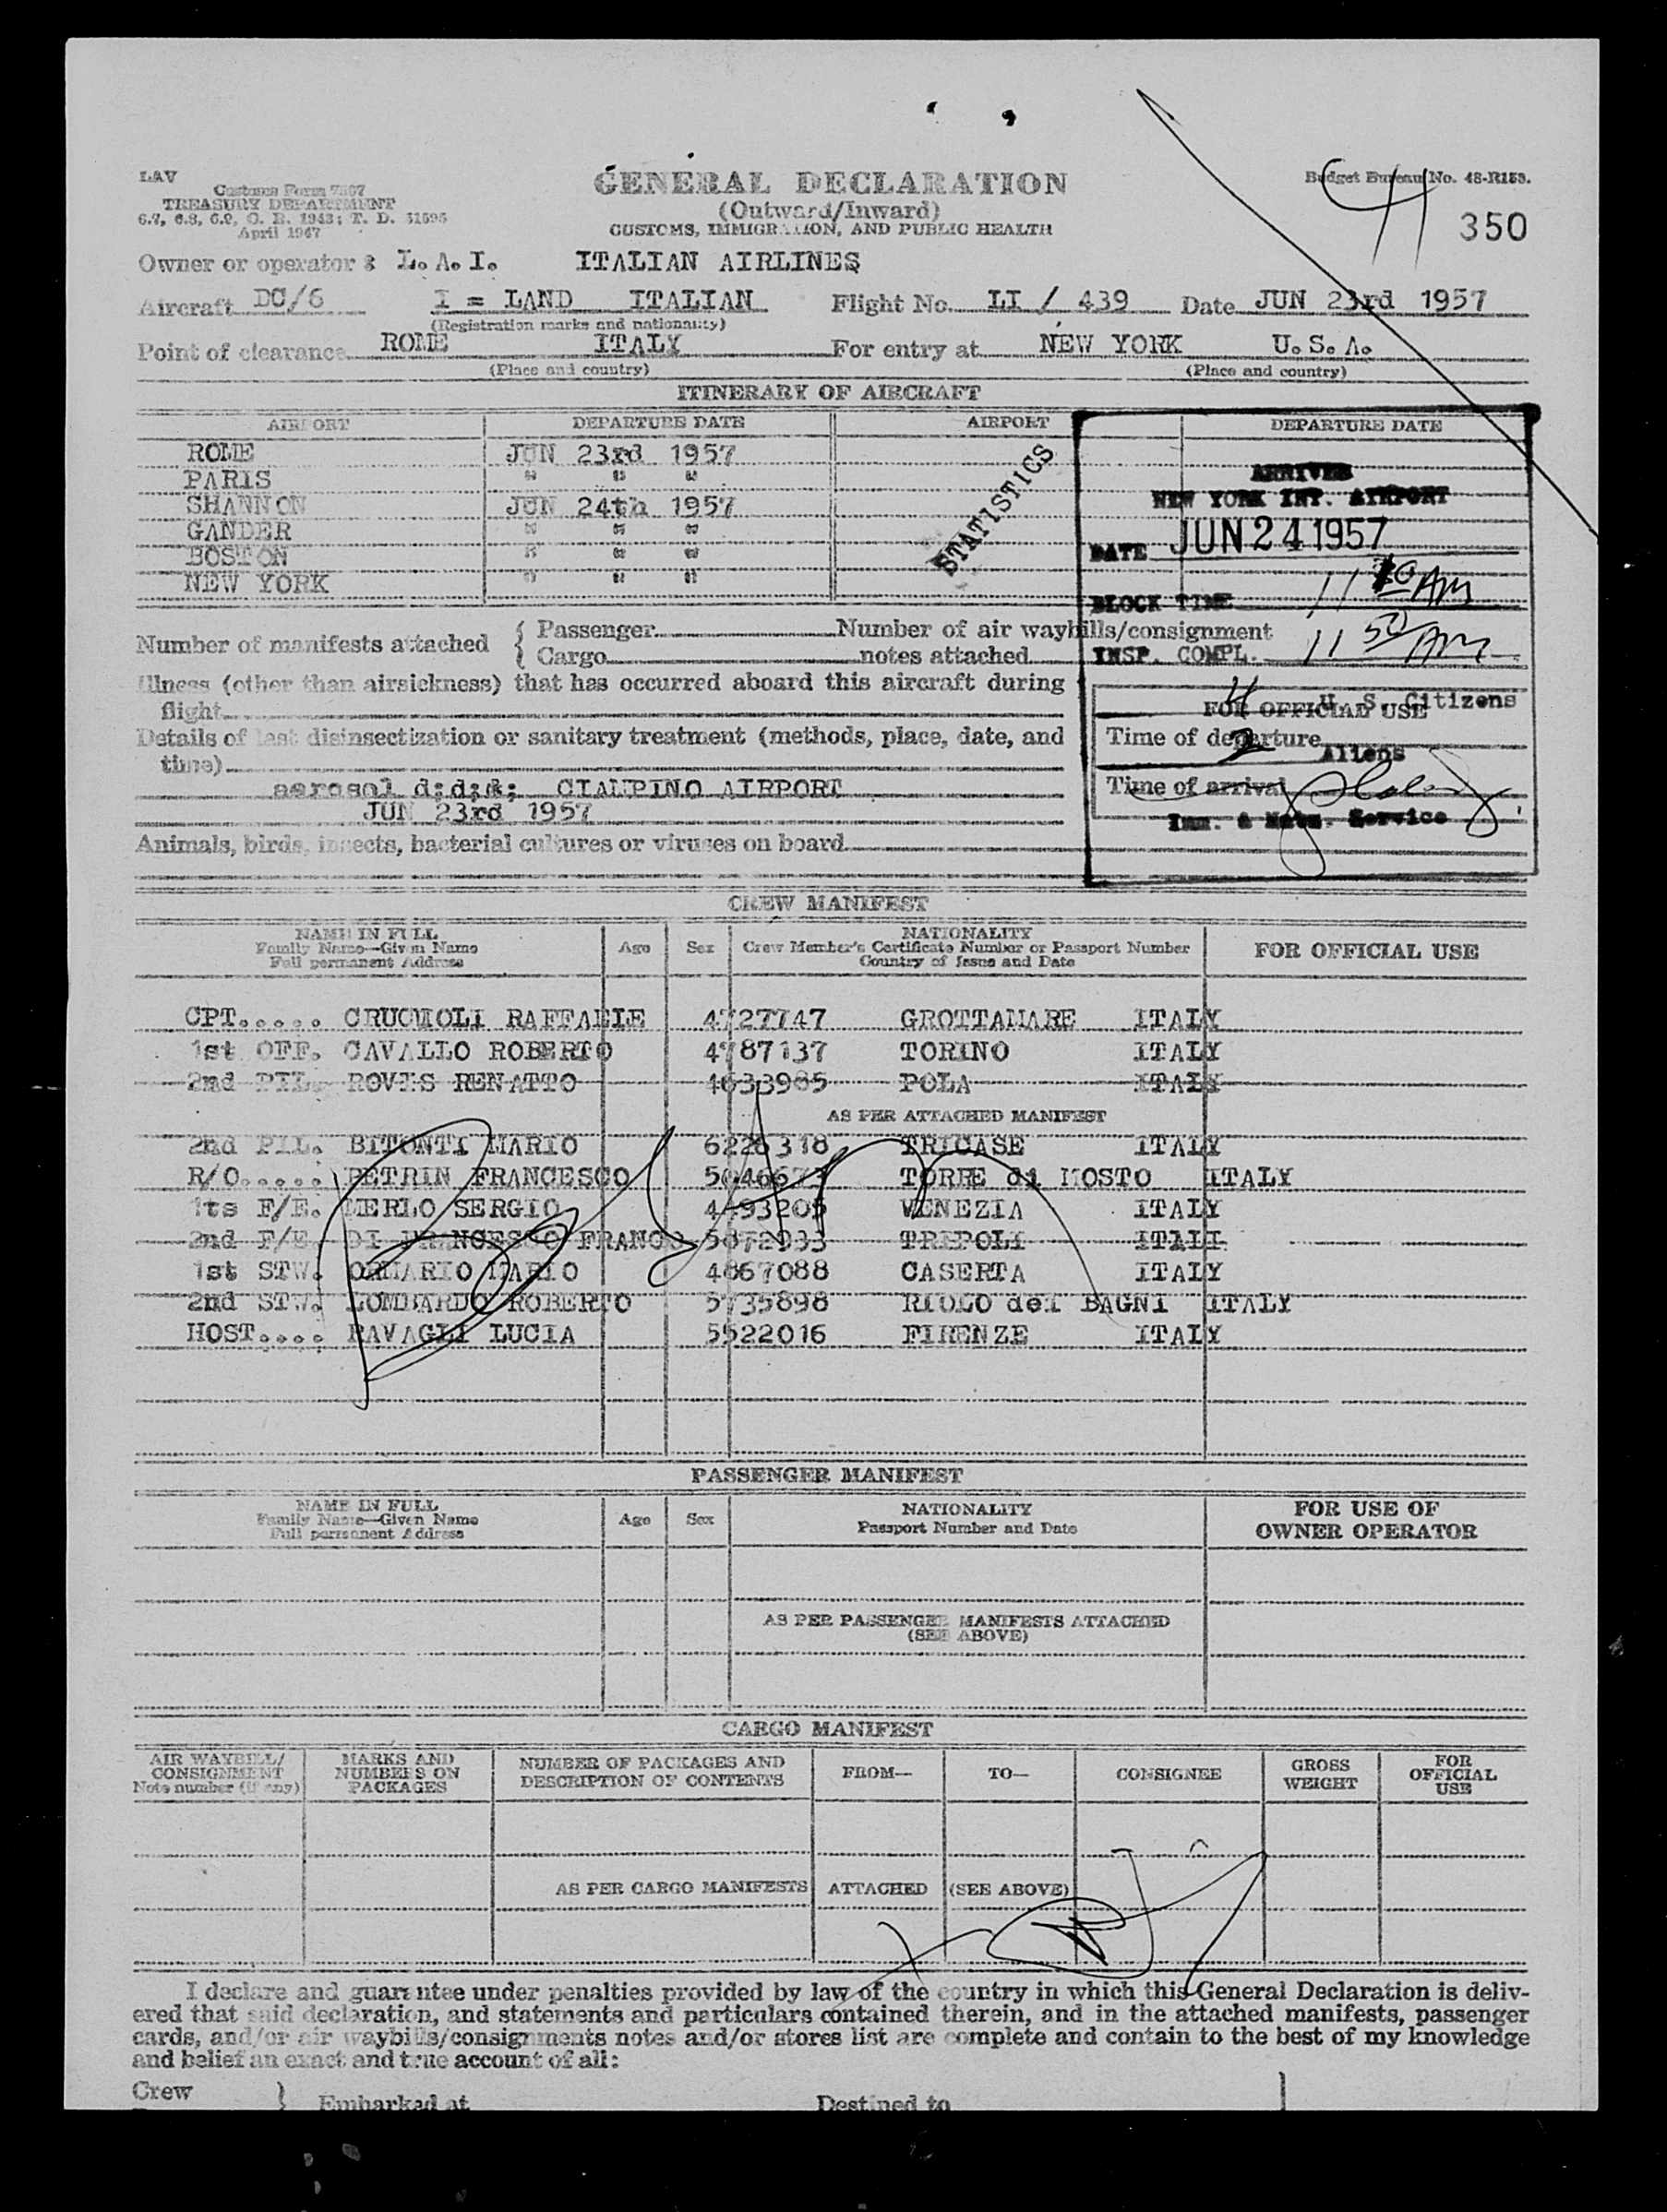 LAV
Customs Form 7507
TREASURY DEPARTMENT
6.7, 6.8, 6.9, C. R. 1943; T. D. 51595
April 1947
GENERAL DECLARATION
(Outward/Inward)
CUSTOMS, IMMIGRATION, AND PUBLIC HEALTH
Budget Bureau No. 48-R153.
350
Owner or operator : L. A. I. ITALIAN AIRLINES
Aircraft DC/6 I = LAND ITALIAN Flight No. LI / 439 Date JUN 23rd 1957
(Registration marks and nationality)
Point of clearance ROME ITALY For entry at NEW YORK U. S. A.
(Place and country) (Place and country)
ITINERARY OF AIRCRAFT
AIRPORT DEPARTURE DATE AIRPORT DEPARTURE DATE
ROME JUN 23rd 1957
PARIS " " "
SHANNON JUN 24th 1957
GANDER " " "
BOSTON " " "
NEW YORK " " "
STATISTICS
ARRIVED
NEW YORK INT. AIRPORT
DATE JUN 24 1957
BLOCK TIME 11 AM
INSP. COMPL. 11 50 AM
4 U. S. Citizens
2 Aliens
Imm. & Natz. Service
Number of manifests attached { Passenger Number of air waybills/consignment
Cargo notes attached
Illness (other than airsickness) that has occurred aboard this aircraft during
flight
FOR OFFICIAL USE
Details of last disinsectization or sanitary treatment (methods, place, date, and
time)
Time of departure
Time of arrival
aerosol d;d;t; CIAMPINO AIRPORT
JUN 23rd 1957
Animals, birds, insects, bacterial cultures or viruses on board
CREW MANIFEST
NAME IN FULL
Family Name—Given Name
Full permanent Address
Age Sex
NATIONALITY
Crew Member's Certificate Number or Passport Number
Country of Issue and Date
FOR OFFICIAL USE
CPT..... CRUCMOLI RAFFAELE 4727747 GROTTAMARE ITALY
1st OFF. CAVALLO ROBERTO 4787137 TORINO ITALY
2nd PIL. ROVIS RENATTO 4633985 POLA ITALY
AS PER ATTACHED MANIFEST
2nd PIL. BITONTI MARIO 6226318 TRICASE ITALY
R/O..... PETRIN FRANCESCO 5046673 TORRE di MOSTO ITALY
1ts F/E. MERLO SERGIO 4493205 VENEZIA ITALY
2nd F/E DI FRANCESCO FRANCO 5872933 TRIPOLI ITALI
1st STW. MARIO 4867088 CASERTA ITALY
2nd STW. LOMBARDO ROBERTO 5735898 RIOLO dei BAGNI ITALY
HOST.... RAVAGLI LUCIA 5522016 FIRENZE ITALY
PASSENGER MANIFEST
NAME IN FULL
Family Name—Given Name
Full permanent Address
Age Sex
NATIONALITY
Passport Number and Date
FOR USE OF
OWNER OPERATOR
AS PER PASSENGER MANIFESTS ATTACHED
(SEE ABOVE)
CARGO MANIFEST
AIR WAYBILL/
CONSIGNMENT
Note number (if any)
MARKS AND
NUMBERS ON
PACKAGES
NUMBER OF PACKAGES AND
DESCRIPTION OF CONTENTS
FROM— TO— CONSIGNEE
GROSS
WEIGHT
FOR
OFFICIAL
USE
AS PER CARGO MANIFESTS ATTACHED (SEE ABOVE)
I declare and guarantee under penalties provided by law of the country in which this General Declaration is deliv-
ered that said declaration, and statements and particulars contained therein, and in the attached manifests, passenger
cards, and/or air waybills/consignments notes and/or stores list are complete and contain to the best of my knowledge
and belief an exact and true account of all:
Crew } Embarked at Destined to